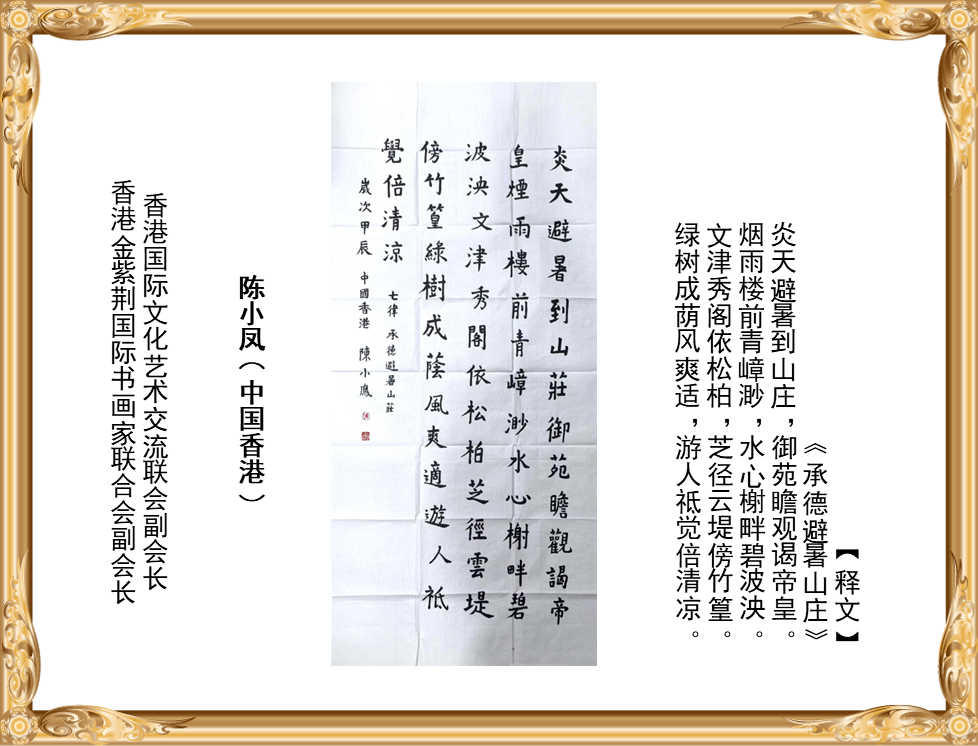 【释文】
《承德避暑山庄》
炎天避暑到山庄，御苑瞻观谒帝皇。
烟雨楼前青嶂渺，水心榭畔碧波泱。
文津秀阁依松柏，芝径云堤傍竹篁。
绿树成荫风爽适，游人祗觉倍清凉。
炎天避暑到山莊御苑瞻觀謁帝
皇煙雨樓前青嶂渺水心榭畔碧
波泱文津秀閣依松柏芝徑雲堤
傍竹篁綠樹成蔭風爽適遊人祗
覺倍清涼 七律 承德避暑山莊
歲次甲辰 中國香港 陳小鳳
陈小凤（中国香港）
香港国际文化艺术交流联会副会长
香港金紫荆国际书画家联合会副会长